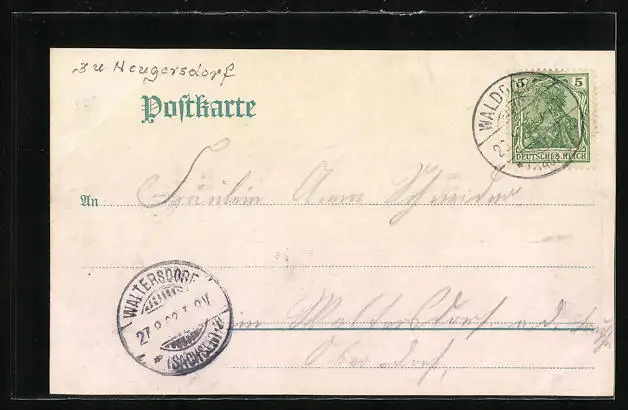 zu Neugersdorf
Postkarte
WALDD
5 5
DEUTSCHES REICH
An Fräulein Anna Schneider
WALTERSDORF
27.8.02 7-8V
(SACHSEN)
in Waltersdorf
Oberdorf